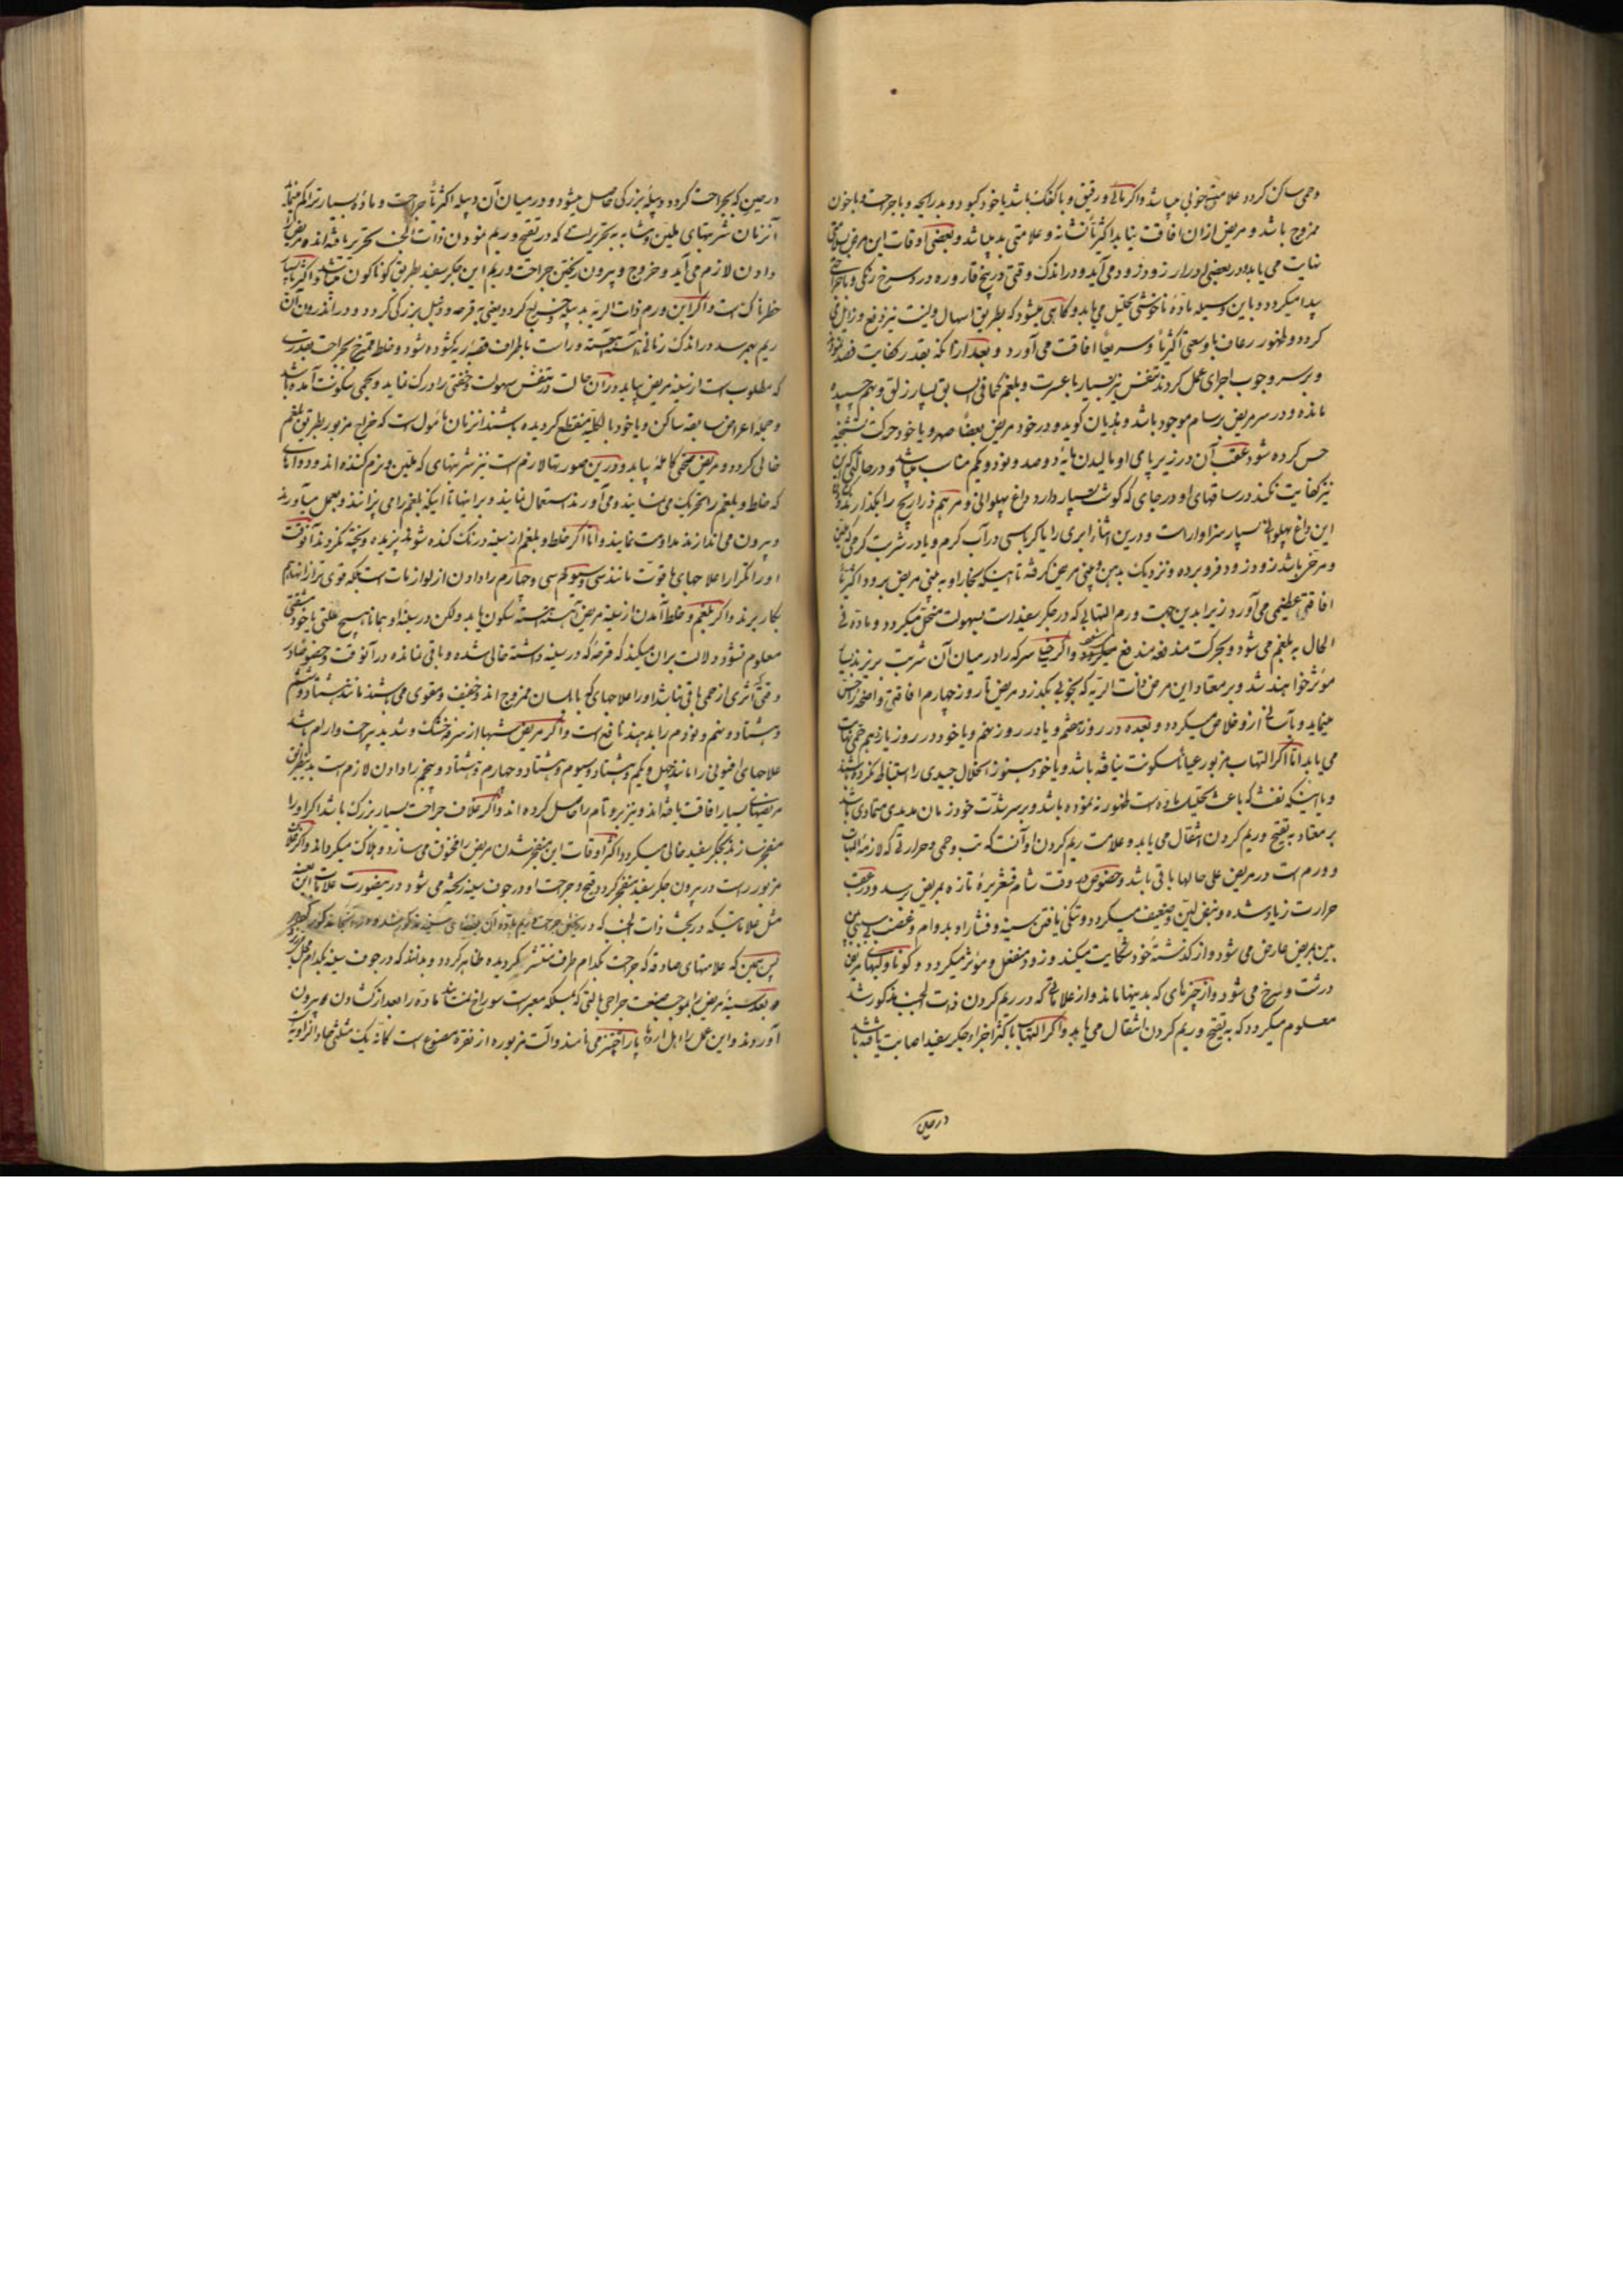 وحمی ساکن کردد علامت خوبی میباشد واکر مائی و رقیق و با کفک باشد یا خود کبود و بد رایحه و با جراحت و با خون
ممزوج باشد و مریض ازان افاقت نیابد اکثریا نشانه و علامتی بد میباشد و بعضی اوقات این مرض
نهایت می یابد و در بعضی ادرار زود زود می آید و در اندک وقتی در بیخ قاروره درد سرخ رنکی
پیدا میکردد و باین وسیله مادّه ناخوشی تحلیل می یابد و کاهی میشود که بطریق اسهال ولینت نیز دفع و زایل
کردد و ظهور رعاف با وسعی اکثریا و سریعا افاقت می آورد و بعد ازانکه بقدر کفایت فصد
و بر سر وجوب اجرای عمل کردند تنفس نیز بسیار با عسرت و بلغم کما فی السابق بسیار زلق و بهم چسپیده
مانده و در سر مریض برسام موجود باشد و هذیان کوید و در خود مریض بعضا صهر و یا خود حرکت
حس کرده شود عقب آن در زیر پای او بالیدن مایه دوصد و نود و یکم مناسب میباشد و در حالتی که این
نیز کفایت نکند در ساقهای او در جای که کوشت بسیار دارد داغ پهلوانی و مرهم ذراریح را بکذارند
این داغ پهلوانی بسیار سزاوار است و درین اثنا ابری را یا کرباسی در آب کرم و یا در شربت کرمی
و مرخی باشد زود زود فرو برده و نزدیک بدهن و بینی مریض کرفته تا اینکه بخار او به بینی مریض برود اکثریا
افاقتی عظیمی می آورد زیرا بدین جهت ورم التهابی که در جکر سفید است بسهولت منحل میکردد و ماده فی
الحال به بلغم می شود و بحرکت مندفع میکردد واکر سرکه را در میان آن شربت بریزند
مؤثر خواهند شد و بر معتاد این مرض ذات الریه که بخوبی بکذرد مریض تا روز چهارم افاقتی واضحه
مینماید و بآسانی ازو خلاص میکردد و بعده در روز هفتم و یا در روز نهم و یا خود در روز یازدهم
می یابد امّا اکر التهاب مزبور عیاناً سکونت نیافته باشد و یا خود هنوز انحلال جیدی را استنباط نکرده
و یا اینکه نفث که باعث تحلیل ماده است ظهور نه نموده باشد و بر سر شدّت خود زمان مدیدی متمادی باشد
بر معتاد به تقیّح و ریم کردن انتقال می یابد و علامت ریم کردن او آنست که تب و حمی و حرارتی که لازمه
و ورم است در مریض علی حالها باقی باشد و خصوصا وقت شام قشعریره تازه بمریض برسد و در عقب
حرارت زیاد شده و نبض لین و ضعیف میکردد و تنکی یافتن سینه و فشار او بدوام
بمریض عارض می شود و از کذشته خود شکایت میکند و زود منفعل و مؤثر میکردد و کونها و لبهای مریض
درشت و سرخ می شود و از چیزهای که بدینها ماند و از علاماتی که در ریم کردن ذات الجنب مذکور شد
معلوم میکردد که به تقیّح و ریم کردن انتقال می یابد واکر التهاب باکثر اجزاء جکر سفید اصابت یافته باشد
در حین
در حین که بجراحت کردد و پیله بزرکی حاصل میشود و در میان آن دپیله اکثریا جراحت و ماده بسیار تراکم
آنزمان شربتهای ملین و مشابه به تحریریست که در تقیح و ریم نمودن ذات الجنب تحریر یافته اند مریض را
دادن لازم می آید و خروج و بیرون ریختن جراحت و ریم این جکر سفید بطریق کوناکون میباشد واکثریا
خطرناک است واکر این ورم ذات الریه بدین کردد یعنی به قرحه و دمل بزرکی کردد و در اندرون آن
ریم بهم رسد در اندک زمانی آهسته آهسته و راست باطراف قصبه ریه کشوده شود و خلط ممتزج بجراحت بقدری
که مطلوب است از سینه مریض بیاید دران حالت در تنفس سهولت و خفتی را درک نماید و بحمی سکونت آمده باشد
و جمله اعراض سابقه ساکن و یا خود بالکلیه منقطع کردیده باشند انزمان مأمول است که خراج مزبور بطریق بلغم
خالی کردد و مریض صحتی کامله بیابد و درین صورتها لازم است نیز شربتهای که ملین و نرم کننده اند و دواهای
که خلط و بلغم را تحریک می نمایند و می آورند استعمال نمایند و بر اینها تا اینکه بلغم را می پزانند و بعمل میآورند
و بیرون می اندازند مداومت نمایند و امّا اکر خلط و بلغم از سینه درنک کنده شوند پزیده و پخته نکردند آنوقت
او را تکرارا علاجهای با قوّت مانند سی و سیوم سی و چهارم را دادن از لوازمات است بلکه قوی تر از
بکار برند واکر بلغم و خلط آمدن از سینه مریض آهسته آهسته سکون یابد ولکن در سینه او همانا هیچ علتی یا خود
معلوم نشود دلالت بران میکند که قرحه که در سینه داشته خالی شده و باقی نمانده در آنوقت
وقتی اثری از حمی باقی نباشد او را علاجهای که با بلسان ممزوج اند و خفیف و مقوی می باشند مانند هشتاد و ششم
و هشتاد و نهم و نودم را بدهند نافع است واکر مریض شبها از سرفه خشک و شدید بی راحت و آرام باشد
علاجهای افیونی را مانند چهل و یکم و هشتاد و سیوم و هشتاد و چهارم و هشتاد و پنجم را دادن لازم است
مریضهای بسیار افاقت یافته اند و نیز برو تام را حاصل کرده اند واکر غلاف جراحت بسیار بزرک باشد اکر او را
منفجر سازند بجکر سفید خالی میکردد اکثر اوقات این منفجر شدن مریض را مخنوق می سازد و هلاک میکرداند
مزبور راست در بیرون جکر سفید منفجر کردد قیح و جراحت او در جوف سینه ریخته می شود درینصورت علامات
مثل علاماتیکه در بحث ذات الجنب که
پس همین که علامتهای صادقه که جراحت بکدام طرف منتشر کردیده ظاهر کردد و بدانند که در جوف سینه بکدام محل
بعد سینه مریض را بموجب صنعت جراحی بآلتی که بمسله معبر است سوراخ نمایند تا ماده را بعد از کشادن بیرون
آورند و این عمل را اهل اروپا پاراچنتز می نامند و آلت مزبوره از نقره مصنوع است کانّه یک مثلثی حاد الزاویه